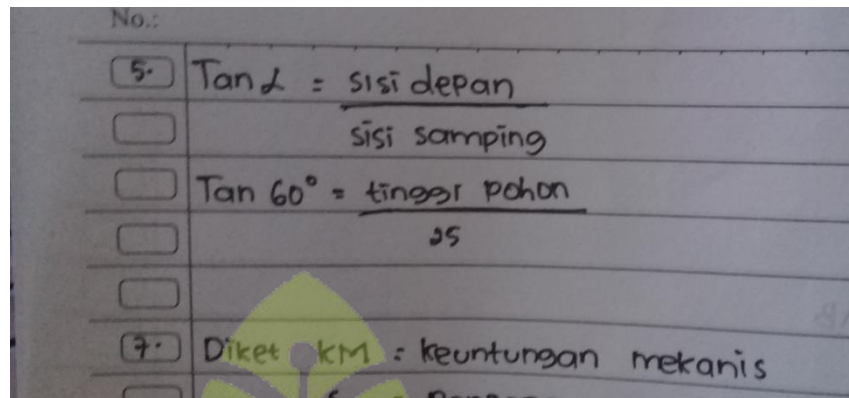 No.:
5. Tan α = sisi depan
sisi samping
Tan 60° = tinggi pohon
25
7. Diket KM = keuntungan mekanis